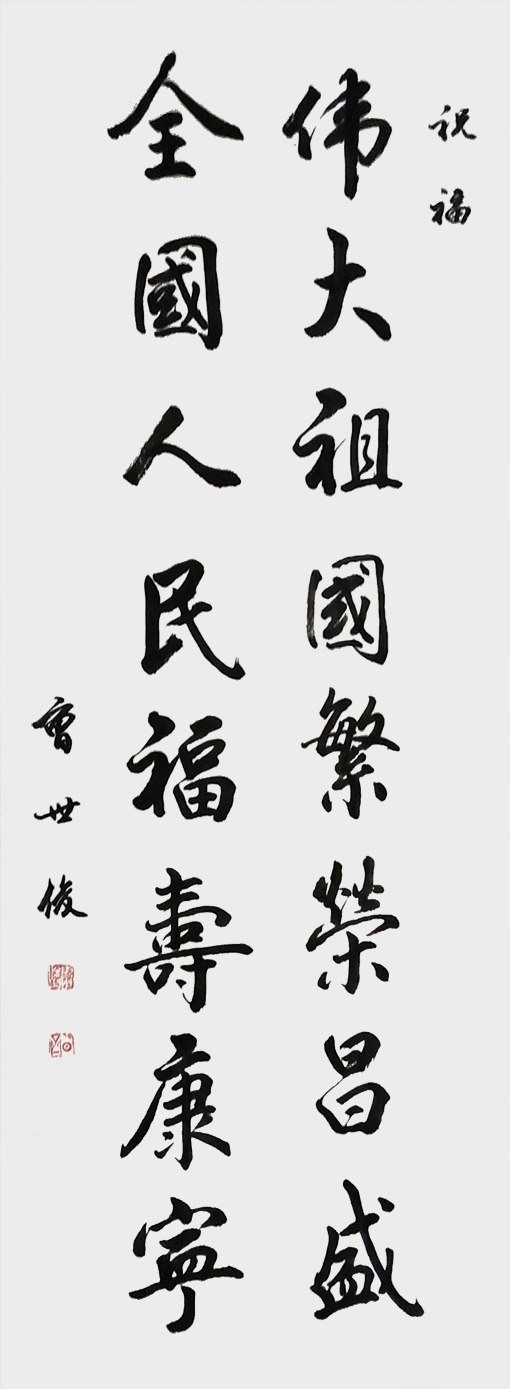 祝福
伟大祖國繁榮昌盛
全國人民福壽康寧
曾世俊